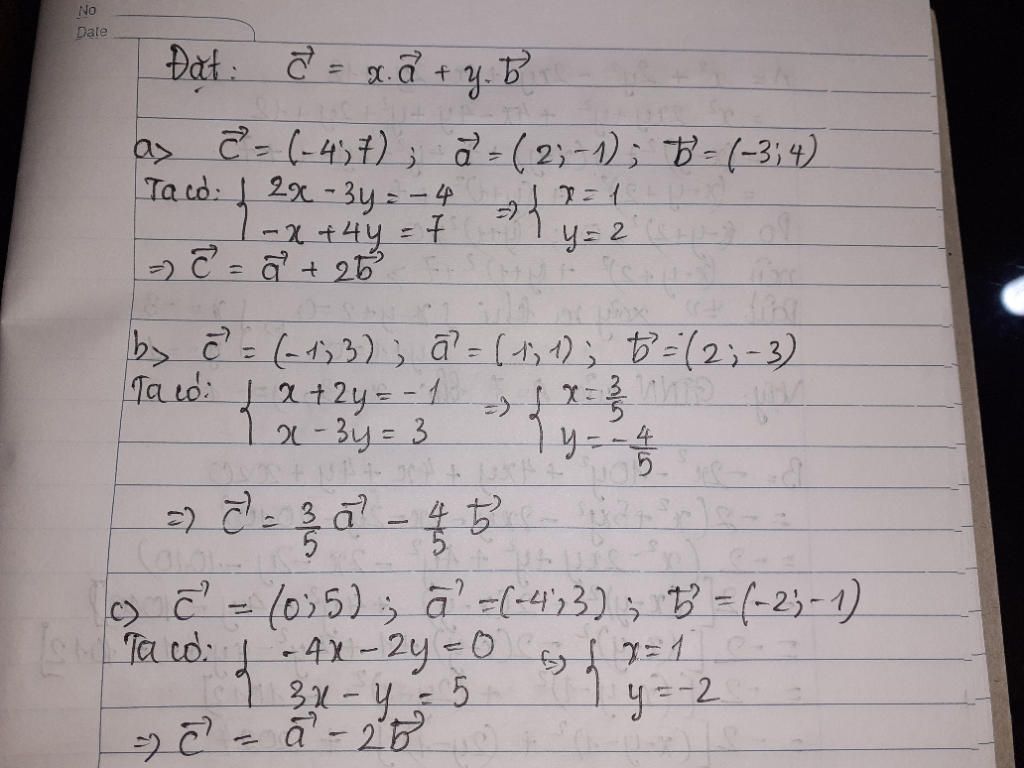 No
Date
Đặt: c⃗ = x.a⃗ + y.b⃗
a> c⃗ = (-4;7) ; a⃗ = (2;-1) ; b⃗ = (-3;4)
Ta có: { 2x - 3y = -4 => { x = 1
-x + 4y = 7 y = 2
=> c⃗ = a⃗ + 2b⃗
b> c⃗ = (-1;3) ; a⃗ = (1;1) ; b⃗ = (2;-3)
Ta có: { x + 2y = -1 => { x = 3/5
x - 3y = 3 y = -4/5
=> c⃗ = 3/5 a⃗ - 4/5 b⃗
c> c⃗ = (0;5) ; a⃗ = (-4;3) ; b⃗ = (-2;-1)
Ta có: { -4x - 2y = 0 => { x = 1
3x - y = 5 y = -2
=> c⃗ = a⃗ - 2b⃗